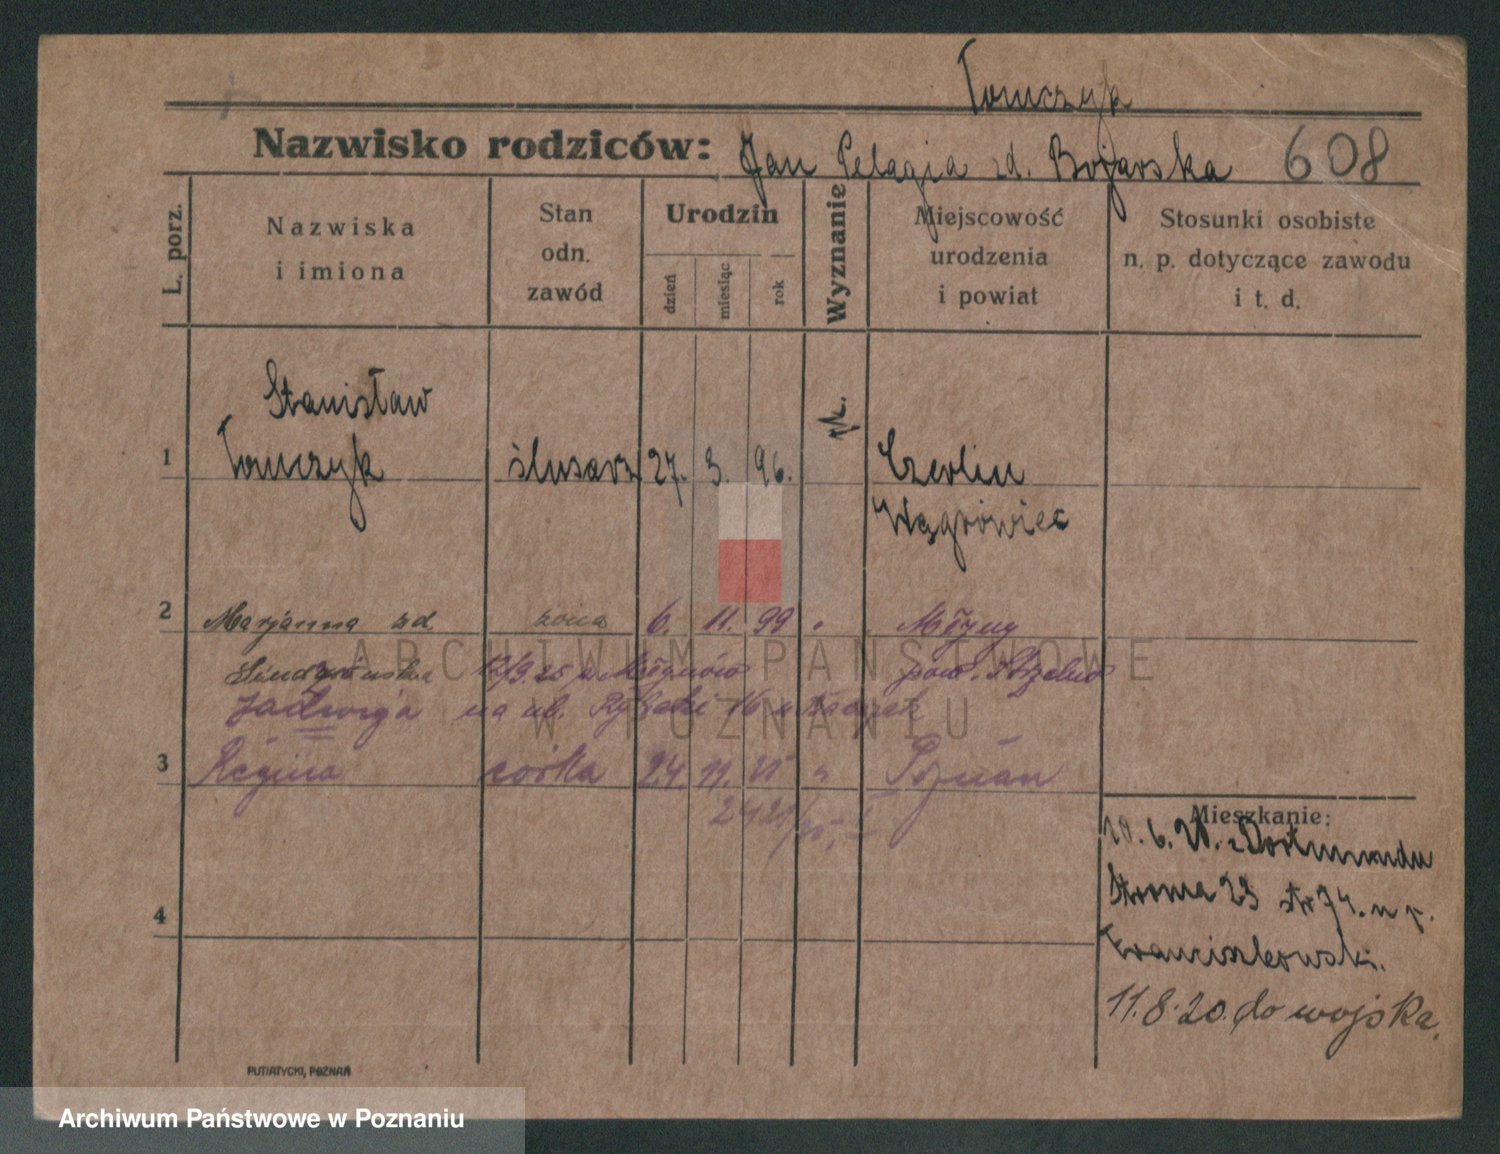 Tomczyk
Nazwisko rodziców: Jan Pelagia zd. Bojarska 608
L. porz.
Nazwiska
i imiona
Stan
odn.
zawód
Urodzin
dzień
miesiąc
rok
Wyznanie
Miejscowość
urodzenia
i powiat
Stosunki osobiste
n. p. dotyczące zawodu
i t. d.
Stanisław
1 Tomczyk ślusarz 27. 3. 96. rk. Czerlin
Wągrowiec
2 Marjanna zd. żona 6. 11. 99 " Młyny
12/9.25 z pow. Strzelno
Jadwiga na ul. Rybaki 16 u
3 Regina córka 24. 11. 25 " Poznań
Mieszkanie:
6. 20. z Dortmundu
4 Stroma 23 str 74. u p.
Franciszkowski.
11.8.20. do wojska.
PUTIATYCKI, POZNAŃ
ARCHIWUM PAŃSTWOWE
W POZNANIU
Archiwum Państwowe w Poznaniu